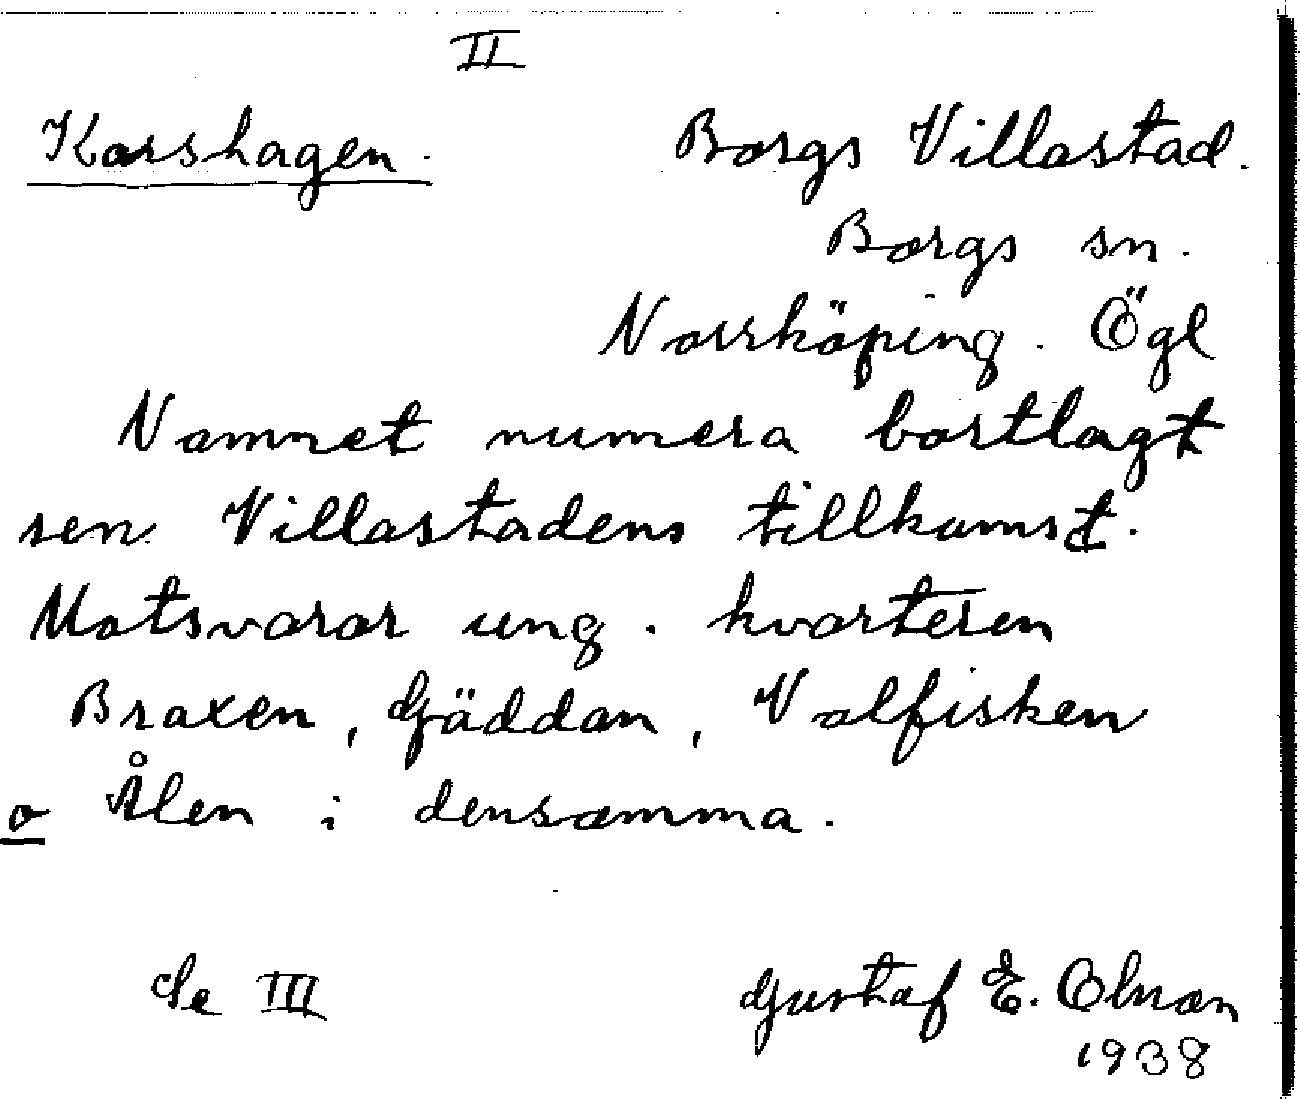 II
Korshagen. Borgs Villastad.
Borgs sn.
Norrköping. Ögl
Namnet numera bortlagt
sen Villastadens tillkomst.
Motsvarar ung. kvarteren
Braxen, Gäddan, Valfisken
o Ålen i densamma.
Se III Gustaf E. Olsson
1938